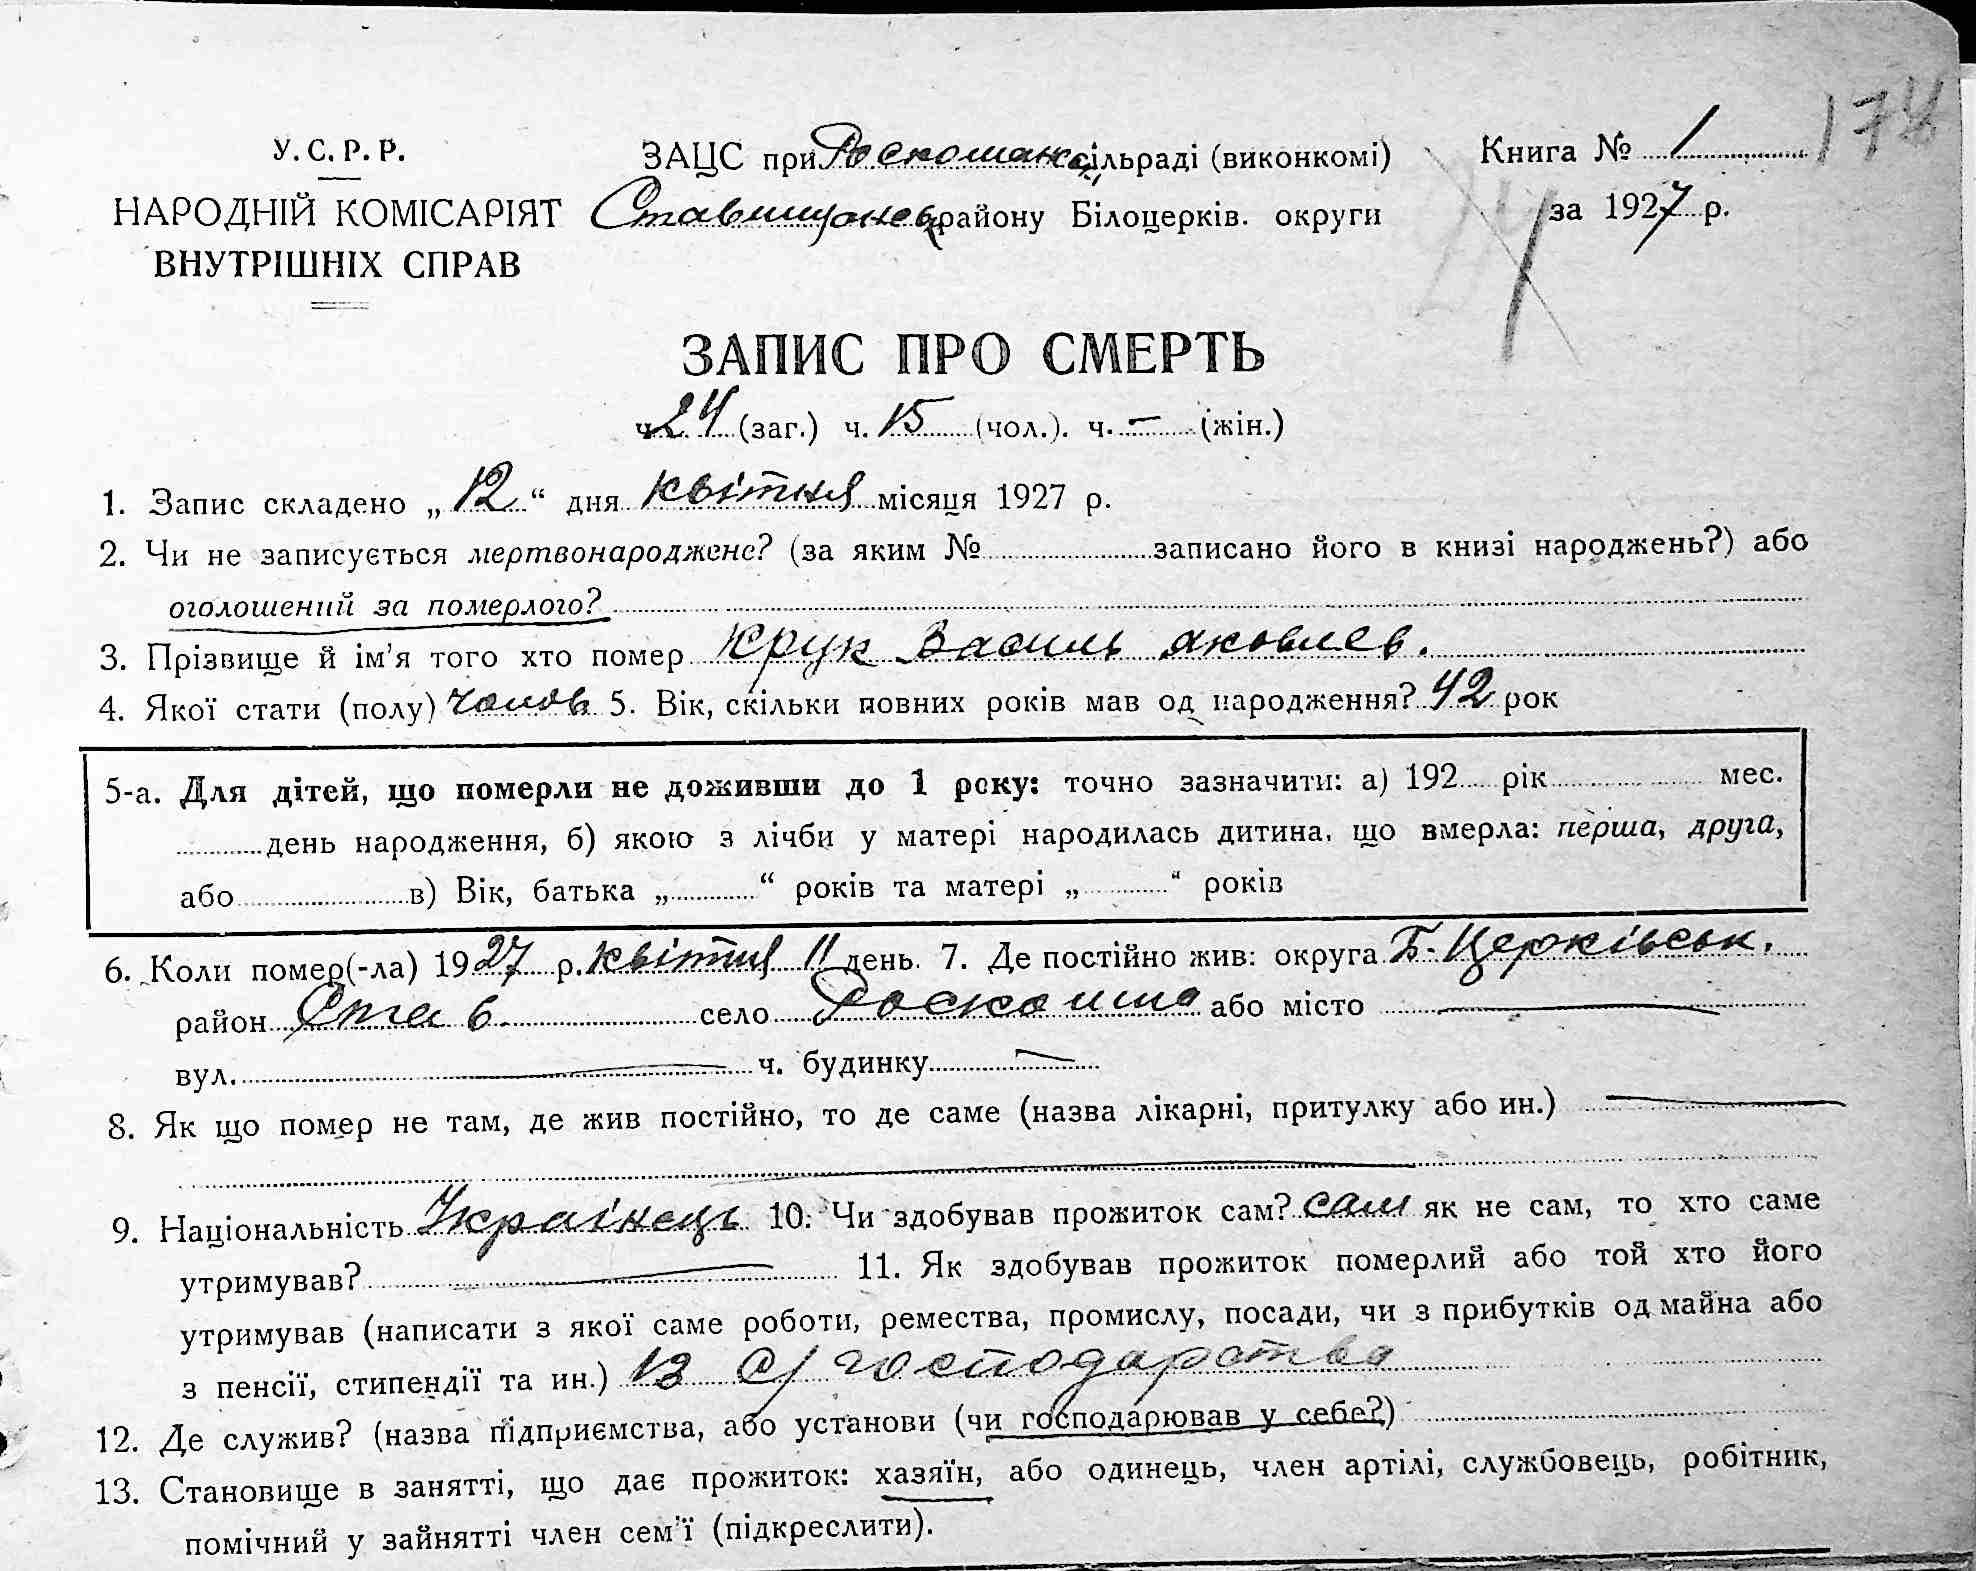 174
У. С. Р. Р.
НАРОДНІЙ КОМІСАРІЯТ
ВНУТРІШНІХ СПРАВ
ЗАЦС при Роскошанс сільраді (виконкомі)
Ставищансь. району Білоцерків. округи
Книга № 1
за 1927 р.
ЗАПИС ПРО СМЕРТЬ
ч. 24 (заг.) ч. 15 (чол.). ч. — (жін.)
1. Запис складено „ 12 “ дня квітня місяця 1927 р.
2. Чи не записується мертвонароджене? (за яким № записано його в книзі народжень?) або
оголошений за померлого?
3. Прізвище й ім’я того хто помер Крук Василь Яковлев.
4. Якої стати (полу) чолов. 5. Вік, скільки повних років мав од народження? 42 рок
5-а. Для дітей, що померли не доживши до 1 року: точно зазначити: а) 192 рік мес.
день народження, б) якою з лічби у матері народилась дитина, що вмерла: перша, друга,
або в) Вік, батька „ “ років та матері „ “ років
6. Коли помер(-ла) 1927 р. квітня 11 день. 7. Де постійно жив: округа Б-Церківськ.
район Став. село Роскошна або місто —
вул. — ч. будинку —
8. Як що помер не там, де жив постійно, то де саме (назва лікарні, притулку або ин.) —
9. Національність Українець 10. Чи здобував прожиток сам? сам як не сам, то хто саме
утримував? — 11. Як здобував прожиток померлий або той хто його
утримував (написати з якої саме роботи, ремества, промислу, посади, чи з прибутків од майна або
з пенсії, стипендії та ин.) Із с/господарства
12. Де служив? (назва підприємства, або установи (чи господарював у себе?)
13. Становище в занятті, що дає прожиток: хазяїн, або одинець, член артілі, службовець, робітник,
помічний у зайнятті член сем’ї (підкреслити).